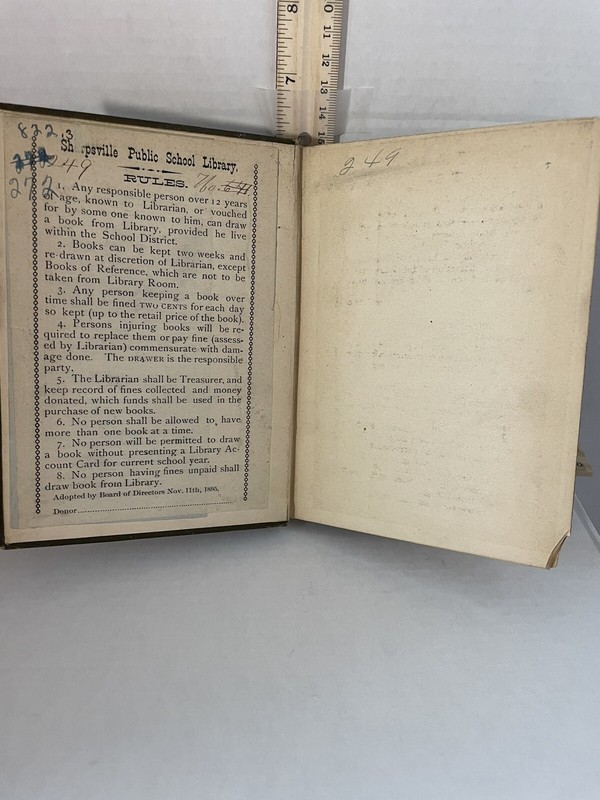 8
7
10
11
12
13
14
15
822.3
Sharpsville Public School Library.
249
RULES.
No.
272
1. Any responsible person over 12 years
of age, known to Librarian, or vouched
for by some one known to him, can draw
a book from Library, provided he live
within the School District.
2. Books can be kept two weeks and
re-drawn at discretion of Librarian, except
Books of Reference, which are not to be
taken from Library Room.
3. Any person keeping a book over
time shall be fined TWO CENTS for each day
so kept (up to the retail price of the book).
4. Persons injuring books will be re-
quired to replace them or pay fine (assess-
ed by Librarian) commensurate with dam-
age done. The DRAWER is the responsible
party.
5. The Librarian shall be Treasurer, and
keep record of fines collected and money
donated, which funds shall be used in the
purchase of new books.
6. No person shall be allowed to have
more than one book at a time.
7. No person will be permitted to draw
a book without presenting a Library Ac-
count Card for current school year.
8. No person having fines unpaid shall
draw book from Library.
Adopted by Board of Directors Nov. 11th, 1895.
Donor
249